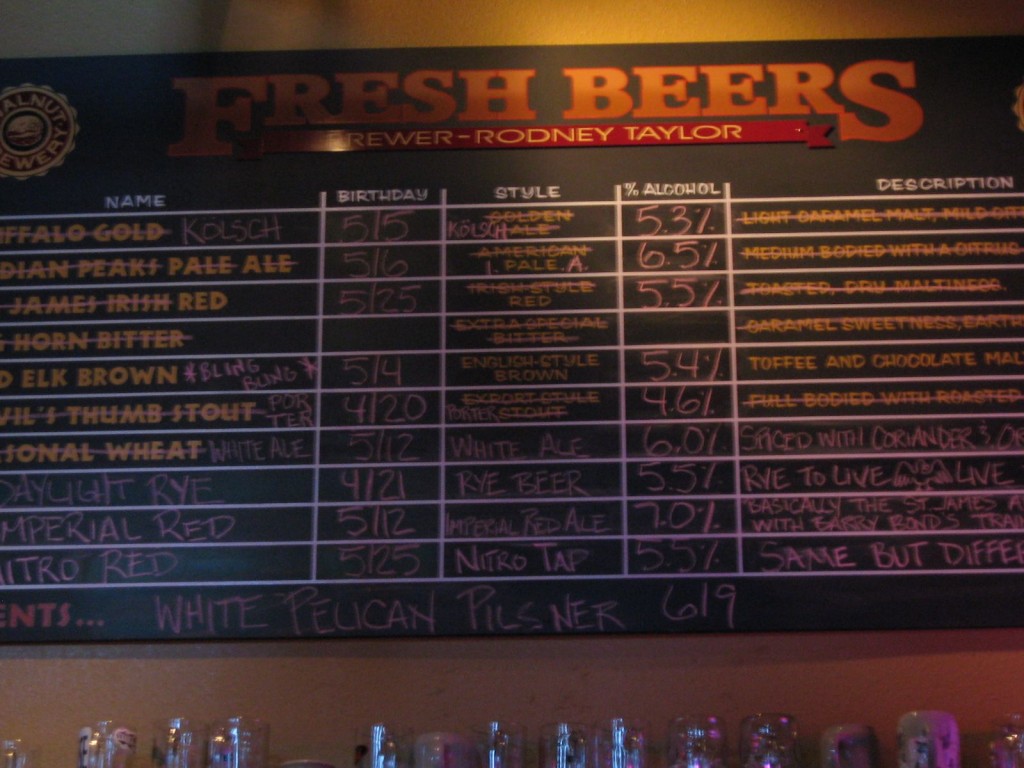 FRESH BEERS
BREWER-RODNEY TAYLOR
WALNUT BREWERY
NAME BIRTHDAY STYLE % ALCOHOL DESCRIPTION
FFALO GOLD KÖLSCH 5/5 KÖLSCH GOLDEN ALE 5.3% LIGHT CARAMEL MALT, MILD
DIAN PEAKS PALE ALE 5/6 AMERICAN I. PALE A. 6.5% MEDIUM BODIED WITH A CITRUS
JAMES IRISH RED 5/25 IRISH STYLE RED 5.5% TOASTED, DRY MALTINESS
HORN BITTER EXTRA SPECIAL BITTER CARAMEL SWEETNESS, EARTH
D ELK BROWN *BLING BLING* 5/4 ENGLISH-STYLE BROWN 5.4% TOFFEE AND CHOCOLATE MAL
VIL'S THUMB STOUT PORTER 4/20 EXPORT STYLE PORTER STOUT 4.6% FULL BODIED WITH ROASTED
SONAL WHEAT WHITE ALE 5/12 WHITE ALE 6.0% SPICED WITH CORIANDER & OR
DAYLIGHT RYE 4/21 RYE BEER 5.5% RYE TO LIVE LIVE
IMPERIAL RED 5/12 IMPERIAL RED ALE 7.0% BASICALLY THE ST. JAMES
WITH BARRY BOND'S TRAI
NITRO RED 5/25 NITRO TAP 5.5% SAME BUT DIFFE
ENTS... WHITE PELICAN PILSNER 6/9